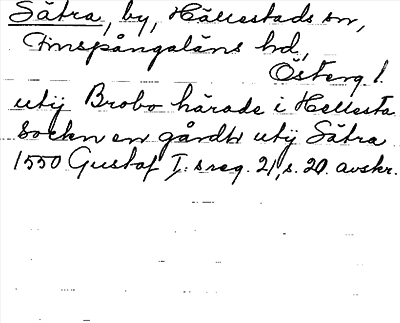 Sätra, by, Hällestads sn,
Finspångaläns hd,
Österg. l.
utij Brobo härade i Hellesta
Sockn en gårdh utij Sätra
1550 Gustaf I: s reg. 21, s. 20. avskr.